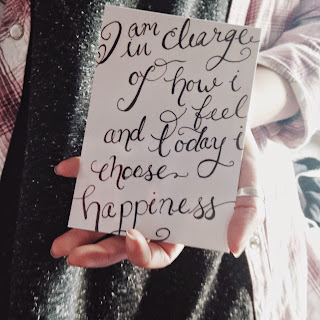 I am
in charge
of how i
feel
and today i
choose
happiness